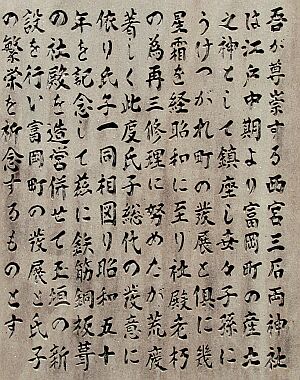 吾が尊崇する西宮三石両神社
は江戸中期より富岡町の産土
之神として鎮座し世々子孫に
うけつがれ町の發展と俱に幾
星霜を経昭和に至り社殿老朽
の為再三修理に努めたが荒廃
著しく此度氏子総代の發意に
依り氏子一同相図り昭和五十
年を記念して茲に鉄筋銅板葺
の社殿を造営併せて玉垣の新
設を行い富岡町の發展と氏子
の繁栄を祈念するものとす